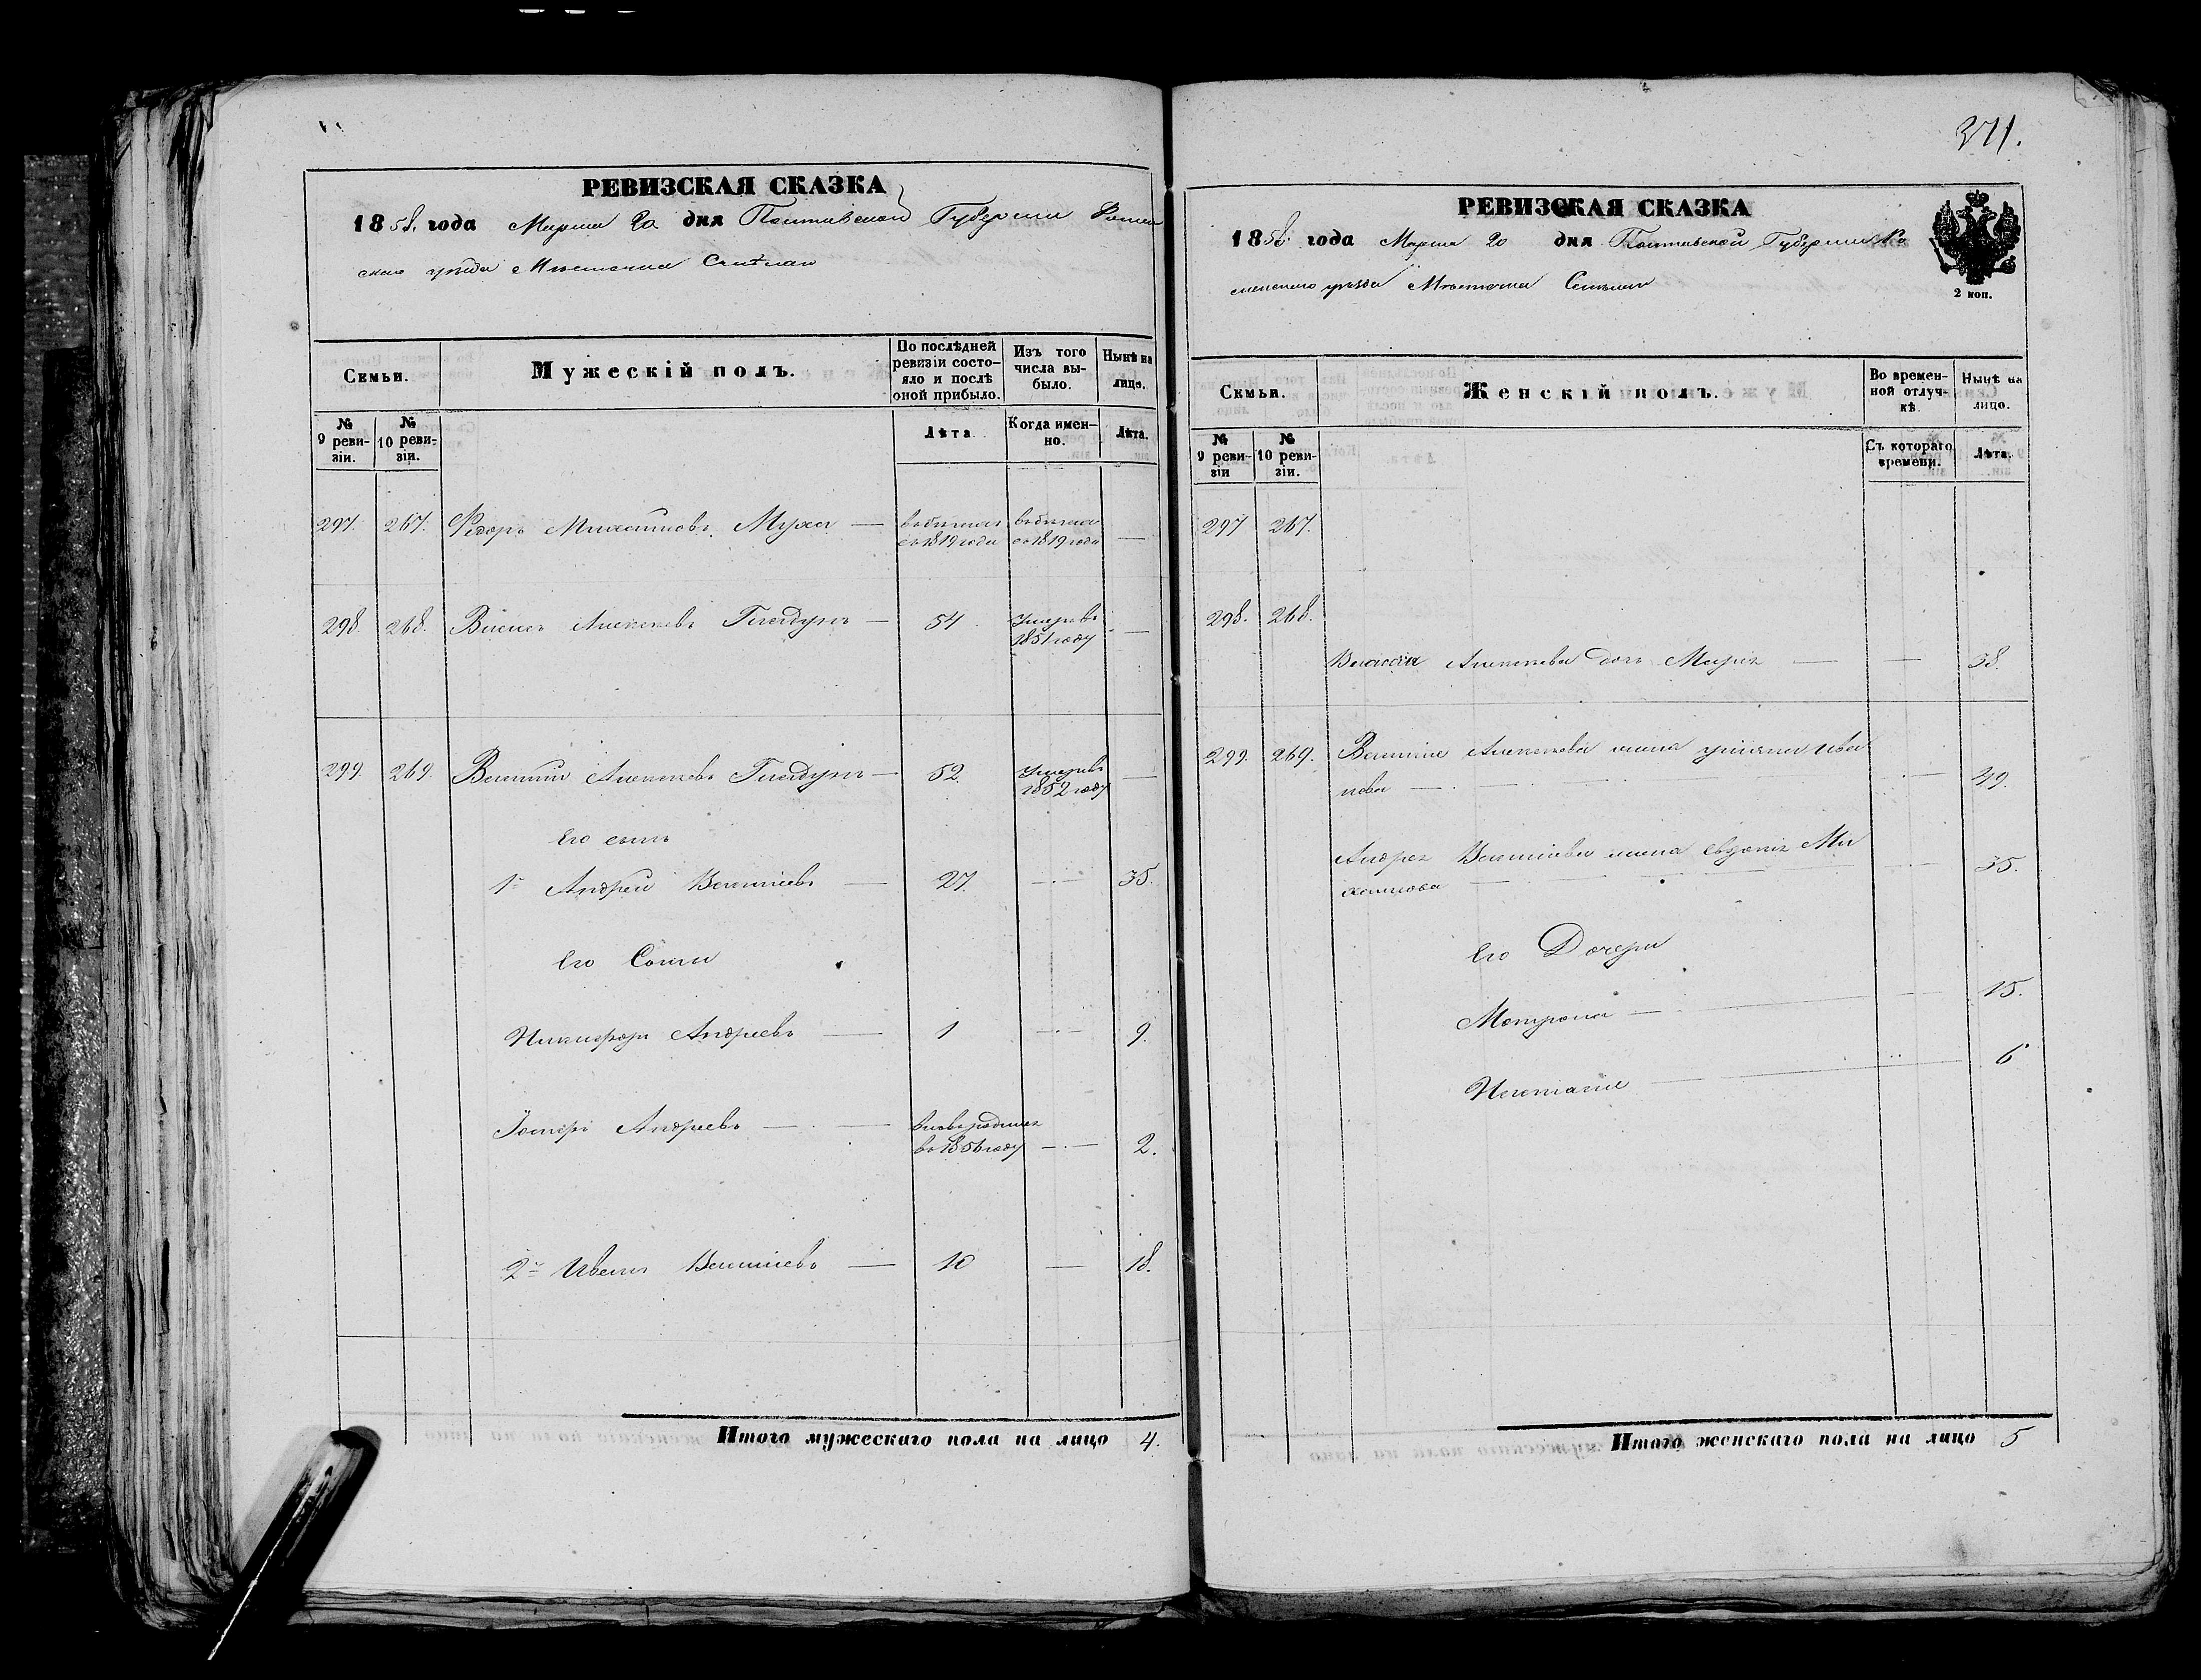 371.
РЕВИЗСКАЯ СКАЗКА
1858. года Марта 20 дня Полтавской Губернии Ромен
скаго уѣзда Мѣстечка Смѣлаго
Семьи.
Мужескій полъ.
По послѣдней
ревизіи состо-
яло и послѣ
оной прибыло.
Изъ того
числа вы-
было.
Нынѣ на
лицо.
№
9 реви-
зіи.
№
10 реви-
зіи.
Лѣта
Когда имен-
но.
Лѣта.
297. 267. Федоръ Михайловъ Муха — въ бѣгахъ въ бѣгахъ
съ 1819 года съ 1819 года —
298. 268. Алексѣевъ Гнедунъ — 54 Умеръ въ
1851 году —
299. 269. Алексѣевъ Гнедунъ — 52. Умеръ въ
1852 году —
Его сынъ
1й Андрей — 27. — 35.
Его Сыны
Никифоръ Андреевъ — 1 — 9.
Андреевъ — вновь рожденъ
въ 1856 году — 2.
2й Иванъ — 10 — 18.
Итого мужескаго пола на лицо 4.
РЕВИЗСКАЯ СКАЗКА
1858. года Марта 20 дня Полтавской Губернии Ро
менскаго уѣзда Мѣстечка Смѣлаго
2 коп.
Семьи.
Женскій полъ.
Во времен-
ной отлуч-
кѣ.
Нынѣ на
лицо.
№
9 реви-
зіи
№
10 реви-
зіи.
Съ котораго
времени.
Лѣта.
297 267.
298. 268.
Алексѣева дочь Марія — — 38.
299. 269. Алексѣева жена Ульяна Ива
нова — — 49.
Андрея жена Евдокія Ми
хайлова — — 35.
Его Дочери
Мотрона — 15.
Наталія — 6
Итого женскаго пола на лицо 5